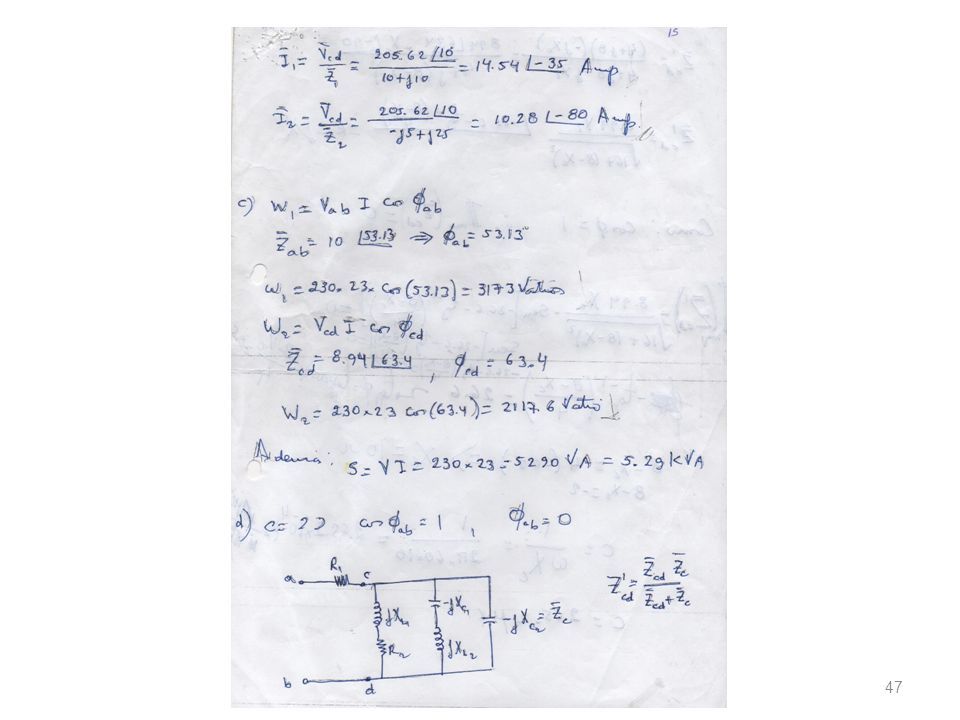 15
Ī₁ = V̄cd/Z̄₁ = 205.62 ∠10 / 10+j10 = 14.54 ∠-35 Amp
Ī₂ = V̄cd/Z̄₂ = 205.62 ∠10 / -j5+j25 = 10.28 ∠-80 Amp.
c) W₁ = Vab I cos ϕab
Z̄ab = 10 ∠53.13 ⇒ ϕab = 53.13°
W₁ = 230 × 23 × cos(53.13) = 3173 Vatios
W₂ = Vcd I cos ϕcd
Z̄cd = 8.94 ∠63.4 , ϕcd = 63.4
W₂ = 230 × 23 cos(63.4) = 2117.6 Vatios
Además: S = VI = 230 × 23 = 5290 VA = 5.29 KVA
d) C = ?? cos ϕab = 1 , ϕab = 0
a R₁ c
jXL₁ -jXc₁ -jXc₂ = Z̄c
R₂ jXL₂
b d
Z'cd = Z̄cd Z̄c / Z̄cd + Z̄c
47